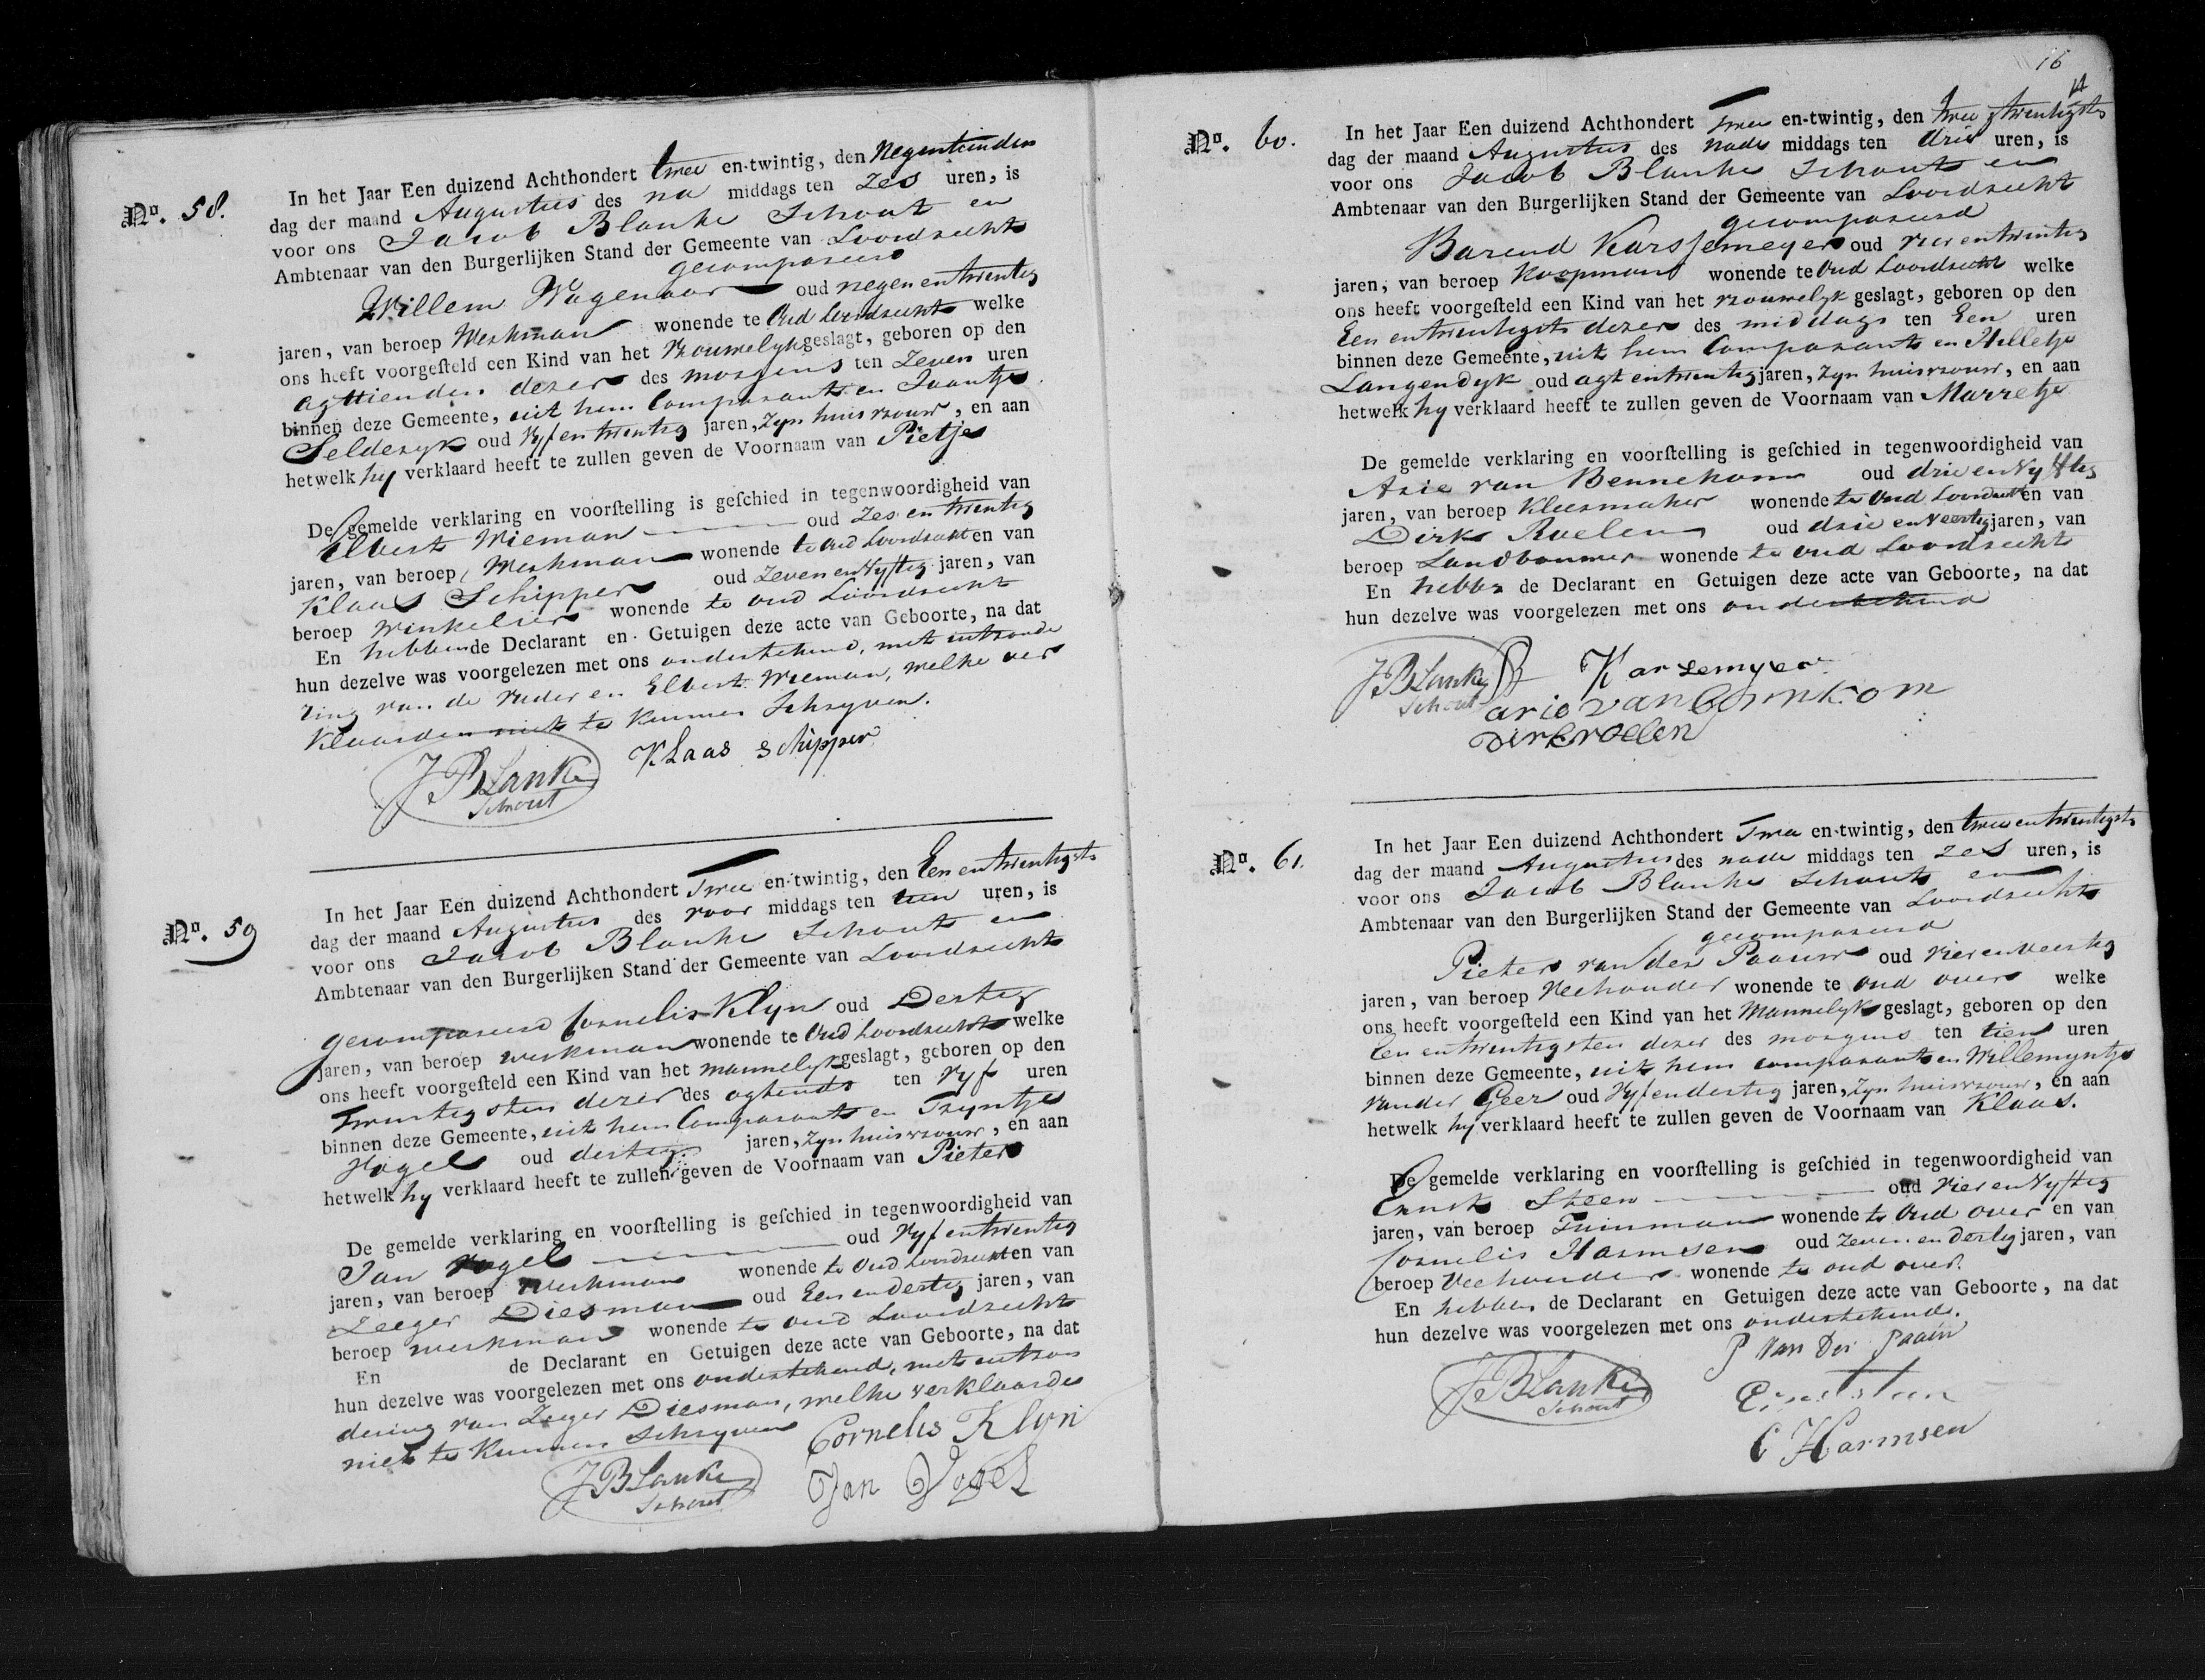 No. 58.
In het Jaar Een duizend Achthondert twee en-twintig, den Negentienden
dag der maand Augustus des na middags ten zes uren, is
voor ons Jacob Blanke Schout en
Ambtenaar van den Burgerlijken Stand der Gemeente van Loosdrecht
gecompareerd
Willem Wagenaar oud negen en twintig
jaren, van beroep Werkman wonende te Oud Loosdrecht welke
ons heeft voorgesteld een Kind van het vrouwelyk geslagt, geboren op den
agttienden dezer des morgens ten zeven uren
binnen deze Gemeente, uit hem Comparant en Jaantje
Selderyk oud vyf en twintig jaren, zyn huisvrouw, en aan
hetwelk hy verklaard heeft te zullen geven de Voornaam van Pietje
De gemelde verklaring en voorstelling is geschied in tegenwoordigheid van
Elbert Wieman oud zes en twintig
jaren, van beroep Werkman wonende te Oud Loosdrecht en van
Klaas Schipper oud zeven en vyftig jaren, van
beroep winkelier wonende te oud Loosdrecht
En hebben de Declarant en Getuigen deze acte van Geboorte, na dat
hun dezelve was voorgelezen met ons ondertekend, met uitzonde
ring van de vader en Elbert Wieman, welke ver
klaarden niet te kunnen Schryven.
JBlanke
Schout
Klaas Schipper
No. 59
In het Jaar Een duizend Achthondert Twee en-twintig, den Een en twintigste
dag der maand Augustus des voor middags ten tien uren, is
voor ons Jacob Blanke Schout en
Ambtenaar van den Burgerlijken Stand der Gemeente van Loosdrecht
gecompareerd Cornelis Klyn oud Dertig
jaren, van beroep werkman wonende te Oud Loosdrecht welke
ons heeft voorgesteld een Kind van het mannelyk geslagt, geboren op den
Twintigsten dezer des ogtends ten vyf uren
binnen deze Gemeente, uit hem Comparant en Tryntje
Vogel oud dertig jaren, zyn huisvrouw, en aan
hetwelk hy verklaard heeft te zullen geven de Voornaam van Pieter
De gemelde verklaring en voorstelling is geschied in tegenwoordigheid van
Jan Vogel oud vyf en twintig
jaren, van beroep werkman wonende te Oud Loosdrecht en van
Zeeger Diesman oud Een en dertig jaren, van
beroep werkman wonende te oud Loosdrecht
En de Declarant en Getuigen deze acte van Geboorte, na dat
hun dezelve was voorgelezen met ons ondertekend, met uitzon
dering van Zeeger Diesman, welke verklaarde
niet te kunnen Schryven
JBlanke
Schout
Cornelis Klyn
Jan Vogel
16
No. 60.
In het Jaar Een duizend Achthondert Twee en-twintig, den twee & twintigste
dag der maand Augustus des nade middags ten drie uren, is
voor ons Jacob Blanke Schout en
Ambtenaar van den Burgerlijken Stand der Gemeente van Loosdrecht
gecompareerd
Barend Karssemeyer oud vier en twintig
jaren, van beroep Koopman wonende te Oud Loosdrecht welke
ons heeft voorgesteld een Kind van het vrouwelyk geslagt, geboren op den
Een en twintigste dezer des middags ten Een uren
binnen deze Gemeente, uit hem Comparant en Hilletje
Langendyk oud agt en twintig jaren, zyn huisvrouw, en aan
hetwelk hy verklaard heeft te zullen geven de Voornaam van Marretje
De gemelde verklaring en voorstelling is geschied in tegenwoordigheid van
Arie van Bennekom oud drie en vyftig
jaren, van beroep Kleermaker wonende te Oud Loosdrecht en van
Dirk Roelen oud drie en veertig jaren, van
beroep Landbouwer wonende te oud Loosdrecht
En hebben de Declarant en Getuigen deze acte van Geboorte, na dat
hun dezelve was voorgelezen met ons ondertekend
JBlanke
Schout
B Karsemyer
arie van Bennkom
Dirk roelen
No. 61.
In het Jaar Een duizend Achthondert Twee en-twintig, den twee en twintigste
dag der maand Augustus des nade middags ten zes uren, is
voor ons Jacob Blanke Schout en
Ambtenaar van den Burgerlijken Stand der Gemeente van Loosdrecht
gecompareerd
Pieter van der Paauw oud vier en veertig
jaren, van beroep Veehouder wonende te oud over welke
ons heeft voorgesteld een Kind van het Mannelyk geslagt, geboren op den
Een en twintigsten dezer des morgens ten tien uren
binnen deze Gemeente, uit hem comparant en Willemyntje
van der Geer oud vyf en dertig jaren, zyn huisvrouw, en aan
hetwelk hy verklaard heeft te zullen geven de Voornaam van Klaas.
De gemelde verklaring en voorstelling is geschied in tegenwoordigheid van
Ernst Steen oud vier en vyftig
jaren, van beroep Tuinman wonende te Oud over en van
Cornelis Harmsen oud zeven en dertig jaren, van
beroep Veehouder wonende te oud over.
En hebben de Declarant en Getuigen deze acte van Geboorte, na dat
hun dezelve was voorgelezen met ons ondertekend.
JBlanke
Schout
P Van Der Paauw
C Harmsen